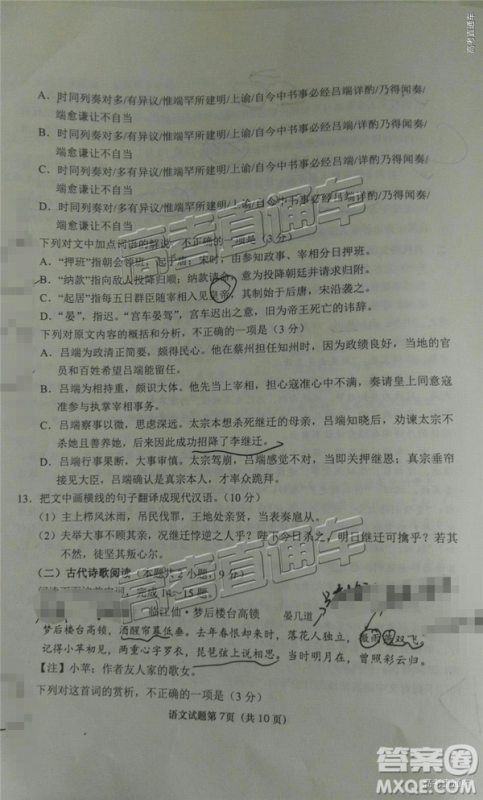 高考直通车
A. 时同列奏对多/有异议/惟端罕所建明/上谕/自今中书事必经吕端详酌/乃得闻奏/
端愈谦让不自当
B. 时同列奏对多有异议/惟端罕所建明/上谕/自今中书事必经吕端/详酌/乃得闻奏/
端愈谦让不自当
C. 时同列奏对多/有异议/惟端罕所建明/上谕/自今中书事必经吕端/详酌/乃得闻奏/
端愈谦让不自当
D. 时同列奏对多有异议/惟端罕所建明/上谕/自今中书事必经吕端详酌/乃得闻奏/
端愈谦让不自当
下列对文中加点词语的解说，不正确的一项是（3 分）
A. “押班”指朝会领班，
宋时，由参知政事、宰相分日押班。
B. “纳款”指向敌人投降归顺；纳款请命，意为投降朝廷并请求归附。
C. “起居”指每五日群臣随宰相入见皇帝，其制始于后唐，宋沿袭之。
D. “晏”，指迟。“宫车晏驾”，宫车迟出之意，旧为帝王死亡的讳辞。
下列对原文内容的概括和分析，不正确的一项是（3 分）
A. 吕端为政清正简易，颇得民心。他在蔡州担任知州时，因为政绩好，当地的官
员和百姓希望吕端能留任。
B. 吕端为相持重，颇识大体。他先于寇准担任宰相，担心寇准心中不平，奏请皇上
参与执掌宰相事务。
C. 吕端察事以微，思虑深远。太宗本想杀死继迁的母亲，吕端知晓后，劝谏太宗不
杀她且善养她，后来因此成功招降了李继迁。
D. 吕端秉性平和，大事审慎。太宗驾崩，吕端
接见大臣，
才率众跪拜。
13. 把文中画横线的句子翻译成现代汉语。（10 分）
（1）主上栉风沐雨，吊民伐罪，王地处亲贤，当表率扈从。
（2）夫举大事不顾其亲，况继迁悖逆之人乎？陛下今日杀之，明日继迁可擒乎？若其
不然，徒结怨仇，愈坚其叛心尔。
（二）古代诗歌阅读（本题共 2 小题，9 分）
完成 14～15题。
临江仙·梦后楼台高锁 晏几道
梦后楼台高锁，酒醒帘幕低垂。去年春恨却来时，落花人独立，微雨燕双飞。
记得小苹初见，两重心字罗衣，琵琶弦上说相思。当时明月在，曾照彩云归。
【注】小苹：作者友人家的歌女。
下列对这首词的赏析，不正确的一项是（3 分）
语文试题第 7页（共 10 页）
高考直通车
答案圈